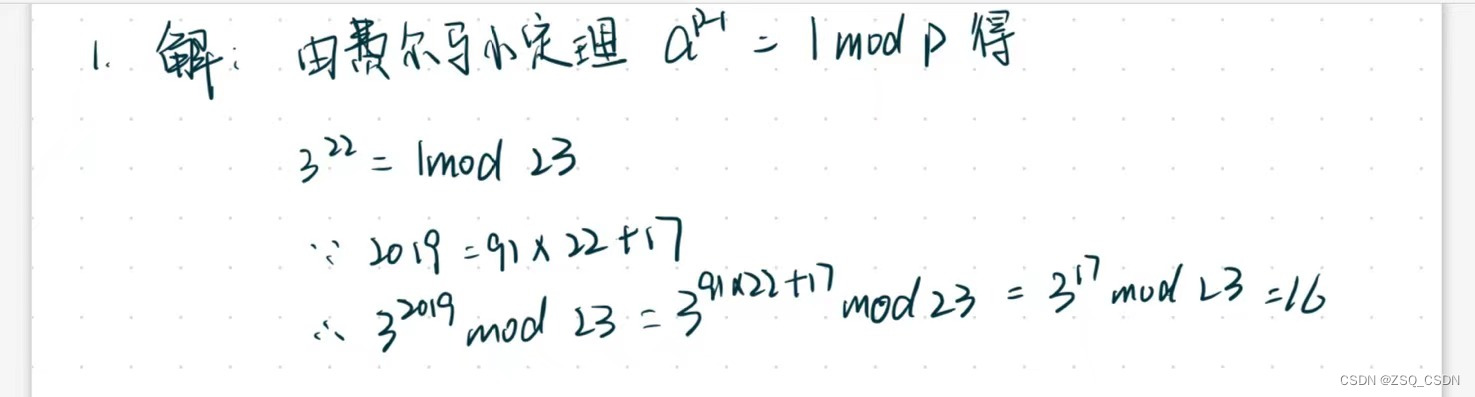 1. 解: 由费尔马小定理 a^{p-1} = 1 mod p 得
3^{22} = 1 mod 23
∵ 2019 = 91 × 22 + 17
∴ 3^{2019} mod 23 = 3^{91×22+17} mod 23 = 3^{17} mod 23 = 16
CSDN @ZSQ_CSDN